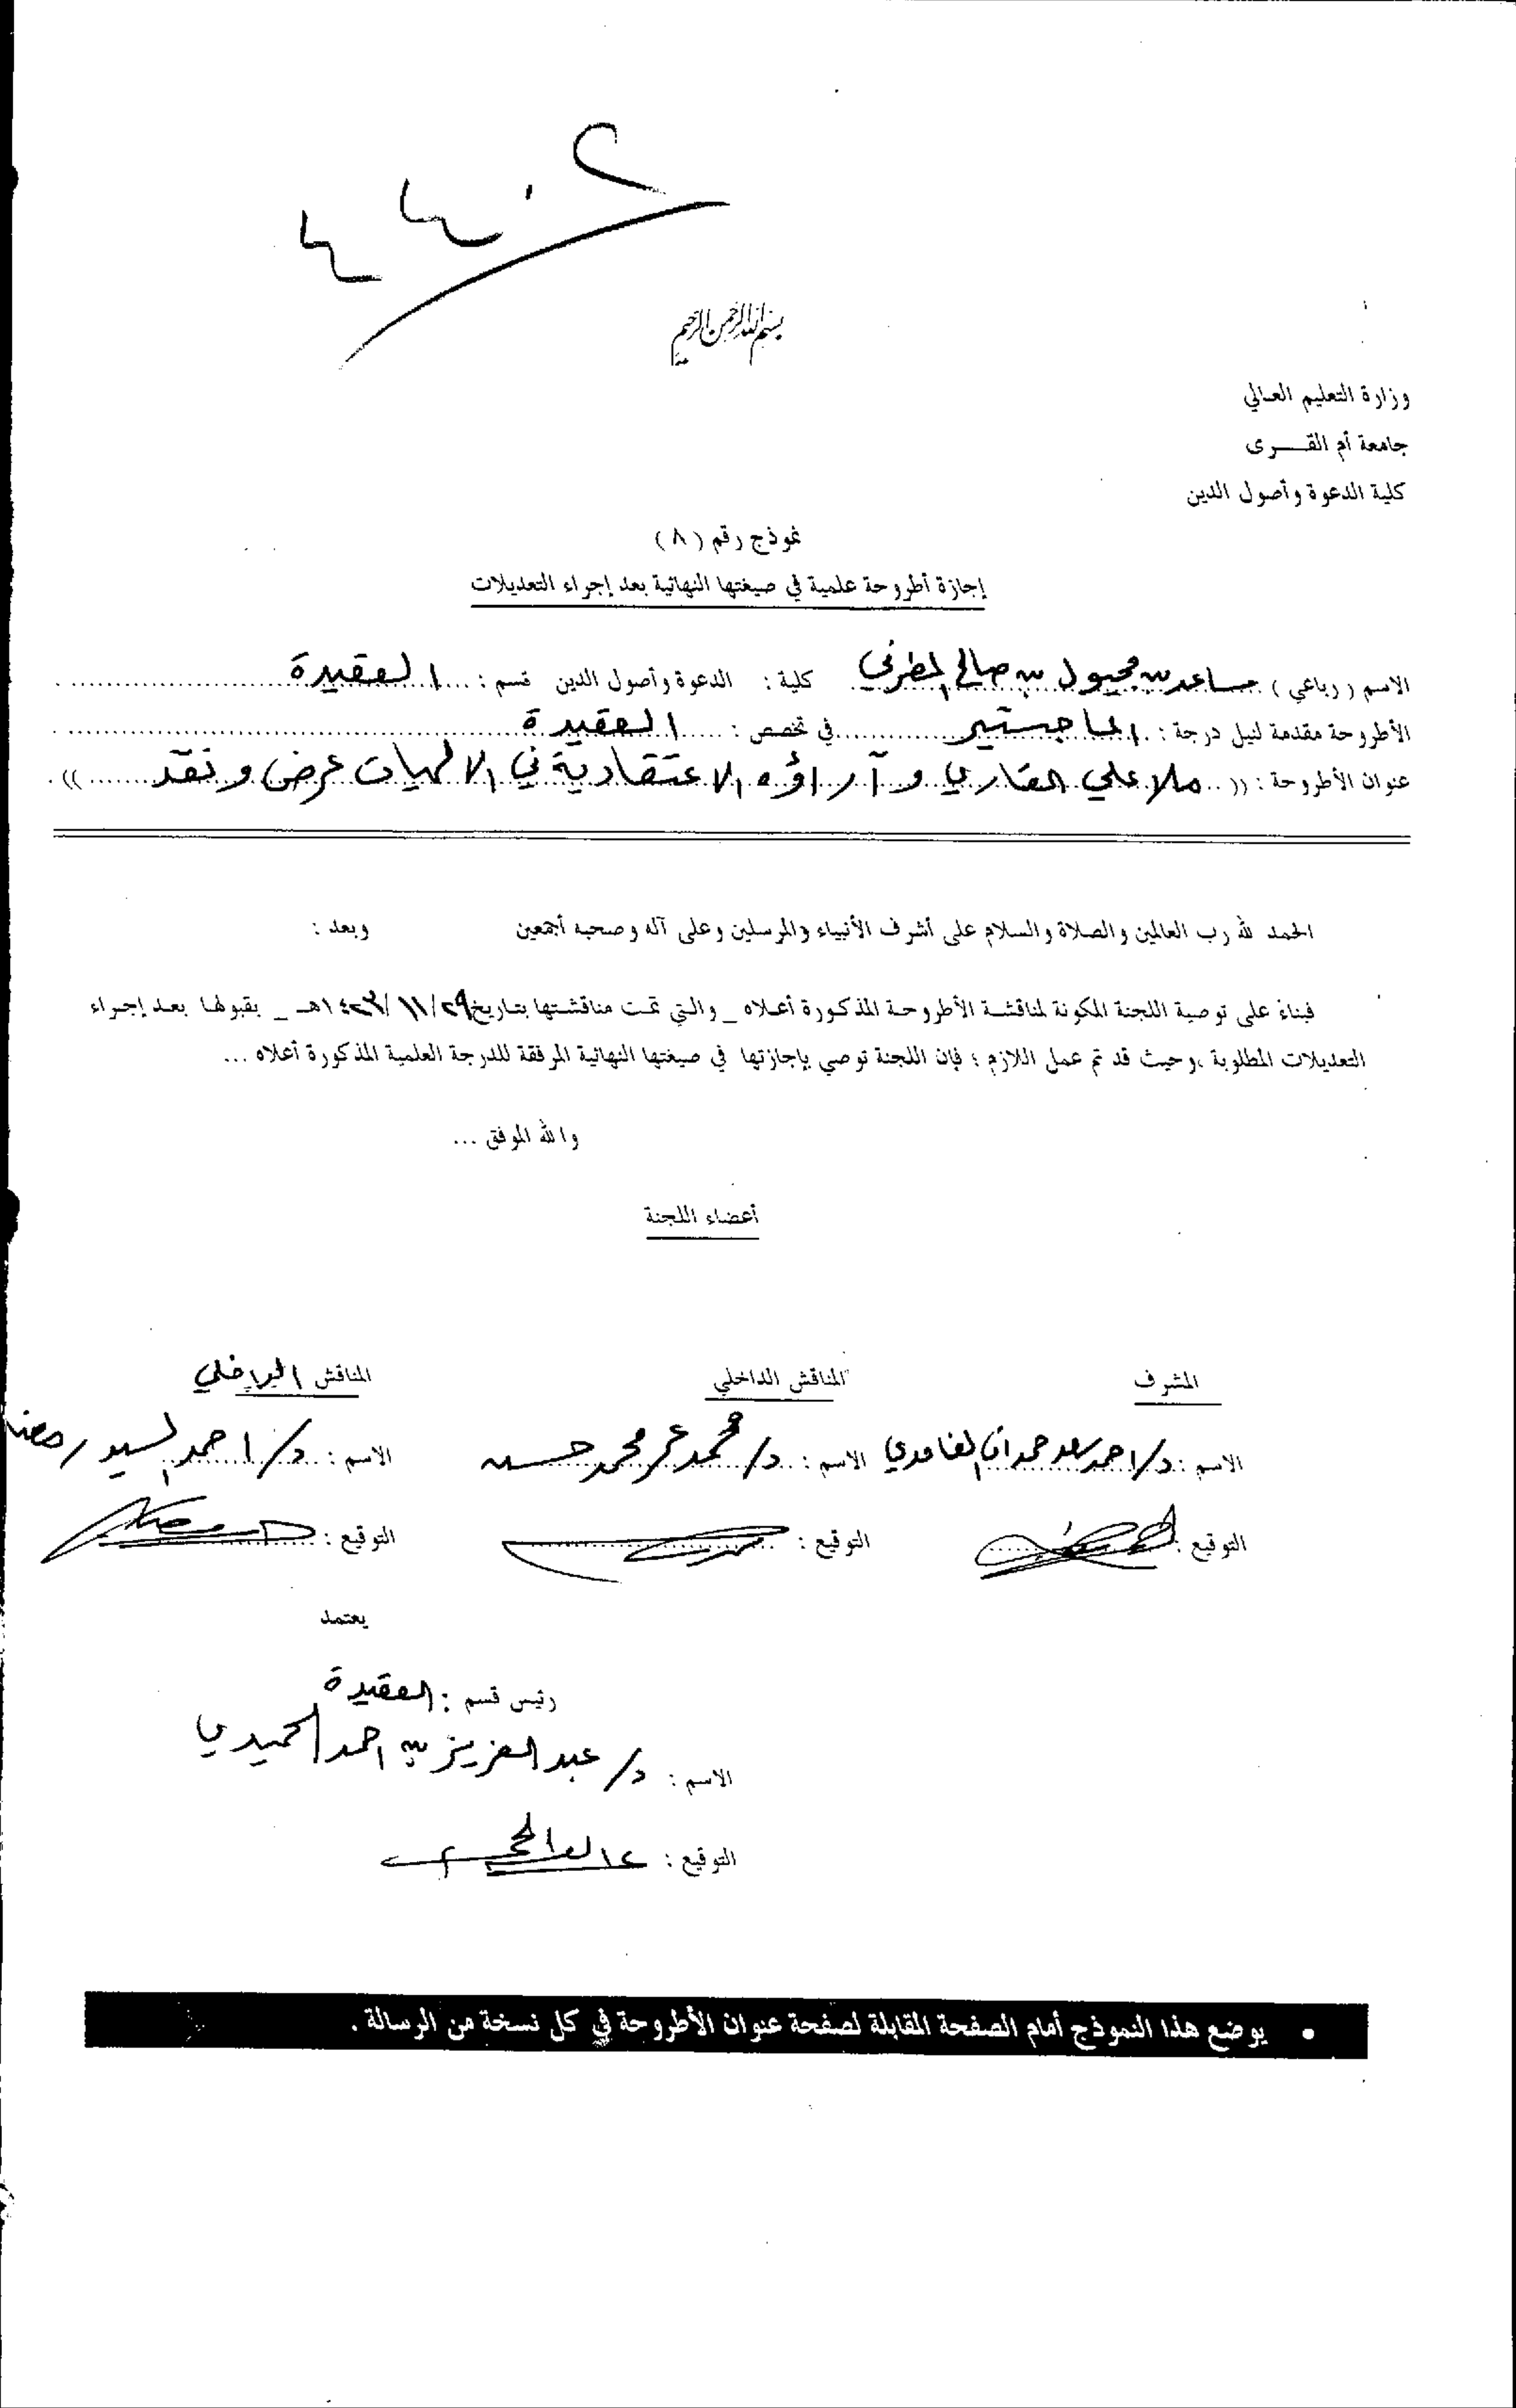 ٤٤٠٢
بسم الله الرحمن الرحيم
وزارة التعليم العالي
جامعة أم القـــرى
كلية الدعوة وأصول الدين
نموذج رقم (٨)
إجازة أطروحة علمية في صيغتها النهائية بعد إجراء التعديلات
الاسم (رباعي) مساعد بن محيول بن صالح المطرفي كلية : الدعوة وأصول الدين قسم : العقيدة
الأطروحة مقدمة لنيل درجة : الماجستير في تخصص : العقيدة
عنوان الأطروحة : (( ملا علي القاري وآراؤه الاعتقادية في الالهيات عرض ونقد )) .
الحمد لله رب العالمين والصلاة والسلام على أشرف الأنبياء والمرسلين وعلى آله وصحبه أجمعين وبعد :
فبناءً على توصية اللجنة المكونة لمناقشة الأطروحة المذكورة أعلاه _ والتي تمت مناقشتها بتاريخ ٢٩/ ١١/ ١٤٢٣هـ _ بقبولها بعد إجراء
التعديلات المطلوبة ، وحيث قد تم عمل اللازم ؛ فإن اللجنة توصي بإجازتها في صيغتها النهائية المرفقة للدرجة العلمية المذكورة أعلاه ...
والله الموفق ...
أعضاء اللجنة
المشرف المناقش الداخلي المناقش
الاسم : د/ احمد سعد حمدان الغامدي الاسم : د/ محمد عمر محمد حسن الاسم : د/ احمد السيد رمضان
التوقيع : التوقيع : التوقيع :
يعتمد
رئيس قسم : العقيدة
الاسم : د/ عبد العزيز بن احمد الحميدي
التوقيع :
• يوضع هذا النموذج أمام الصفحة المقابلة لصفحة عنوان الأطروحة في كل نسخة من الرسالة .